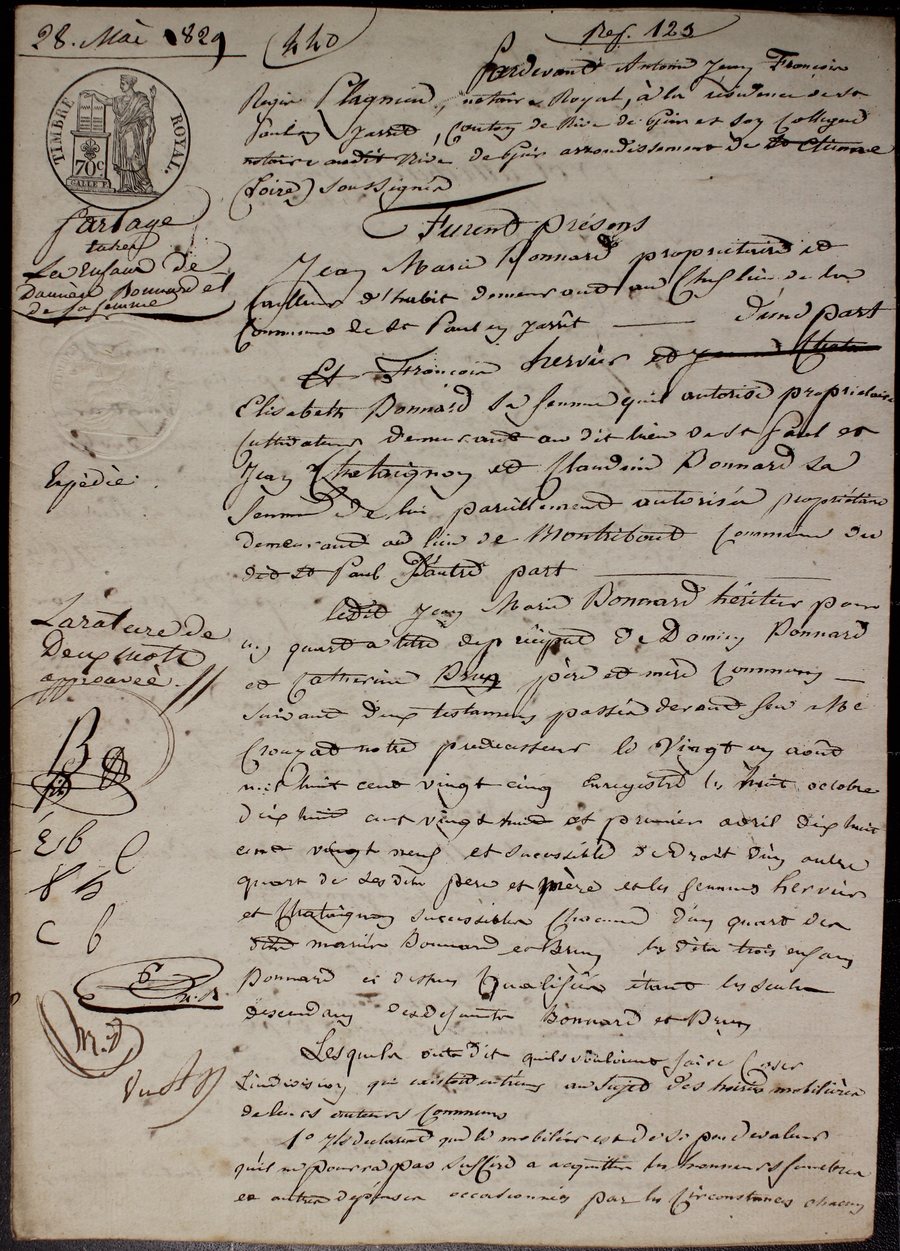 28. Mai 1829
440
Rep. 123
TIMBRE ROYAL.
70c
Partage
entre
Les Enfans de
Damien Bonnard et
de sa femme
Expédié.
La rature de
Deux mots
approuvée.
B
E b
c b
Pardevant Antoine Jean François
Régis Plagnieu, notaire Royal, à la résidence de st
Paul en Jarret, Canton de Rive de Gier et son Collègue
notaire audit Rive de Gier arrondissement de St Etienne
(Loire) soussignés
Furent présens
Jean Marie Bonnard propriétaire et
tailleur d'habit demeurant au Chef lieu de la
Commune de St Paul en Jarrêt d'une part
Et François hervier et
Elisabeth Bonnard sa femme quil autorise propriétaires
Cultivateurs demeurant au dit lieu de St Paul et
Jean Chataignon et Claudine Bonnard sa
femme de lui pareillement autorisée propriétaires
demeurant au lieu de Montribout Commune du
dit St Paul D'autre part
Ledit Jean Marie Bonnard héritier pour
un quart a titre de préciput de Damien Bonnard
et Catherine Brun père et mère Communs
suivant deux testamens passés devant feu Me
Crouzat notre prédécesseur le vingt un août
mil huit cent vingt cinq Enregistré les huit octobre
dix huit cent vingt huit et premier avril dix huit
cent vingt neuf et successible de droit d'un autre
quart de ses dits père et mère et les femmes hervier
et Chataignon successibles Chacune d'un quart des
dits mariés Bonnard et Brun les dits trois enfans
Bonnard ci dessus qualifiés étant les seuls
descendans desdéfunts Bonnard et Brun
Lesquels ont dit quils vouloient faire Cesser
L'indivision qui existoit entreux au sujet des hoiries mobilières
de leurs auteurs Communs
1o Ils déclarent que le mobilier est de si peu de valeur
qu'il ne pourra pas suffire a acquitter les honneurs funèbres
et autres dépenses occasionnées par les Circonstances chacun